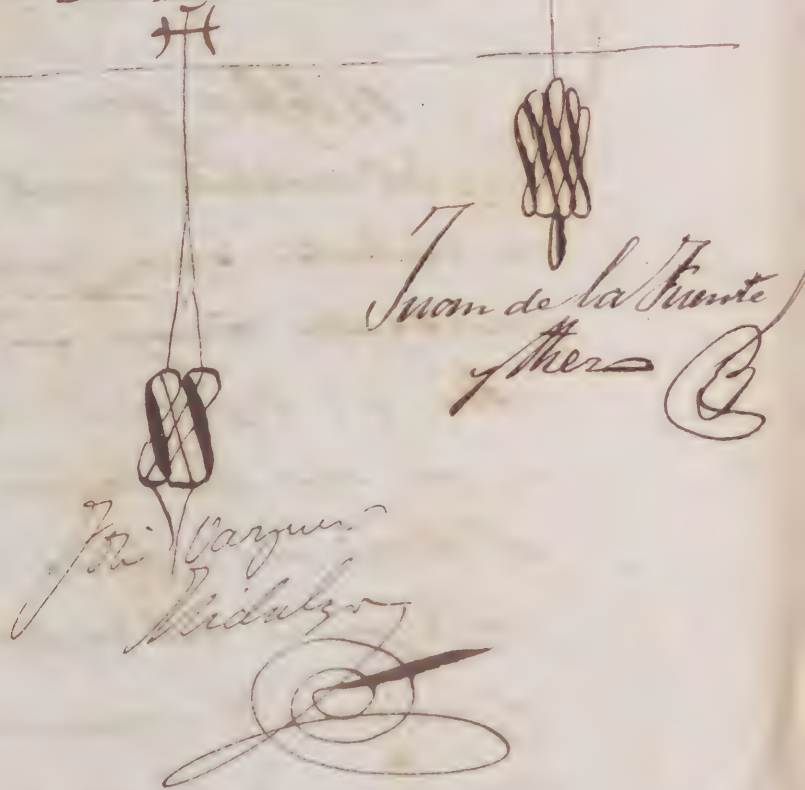 Juan de la Fuente
José Vazquez
Hidalgo